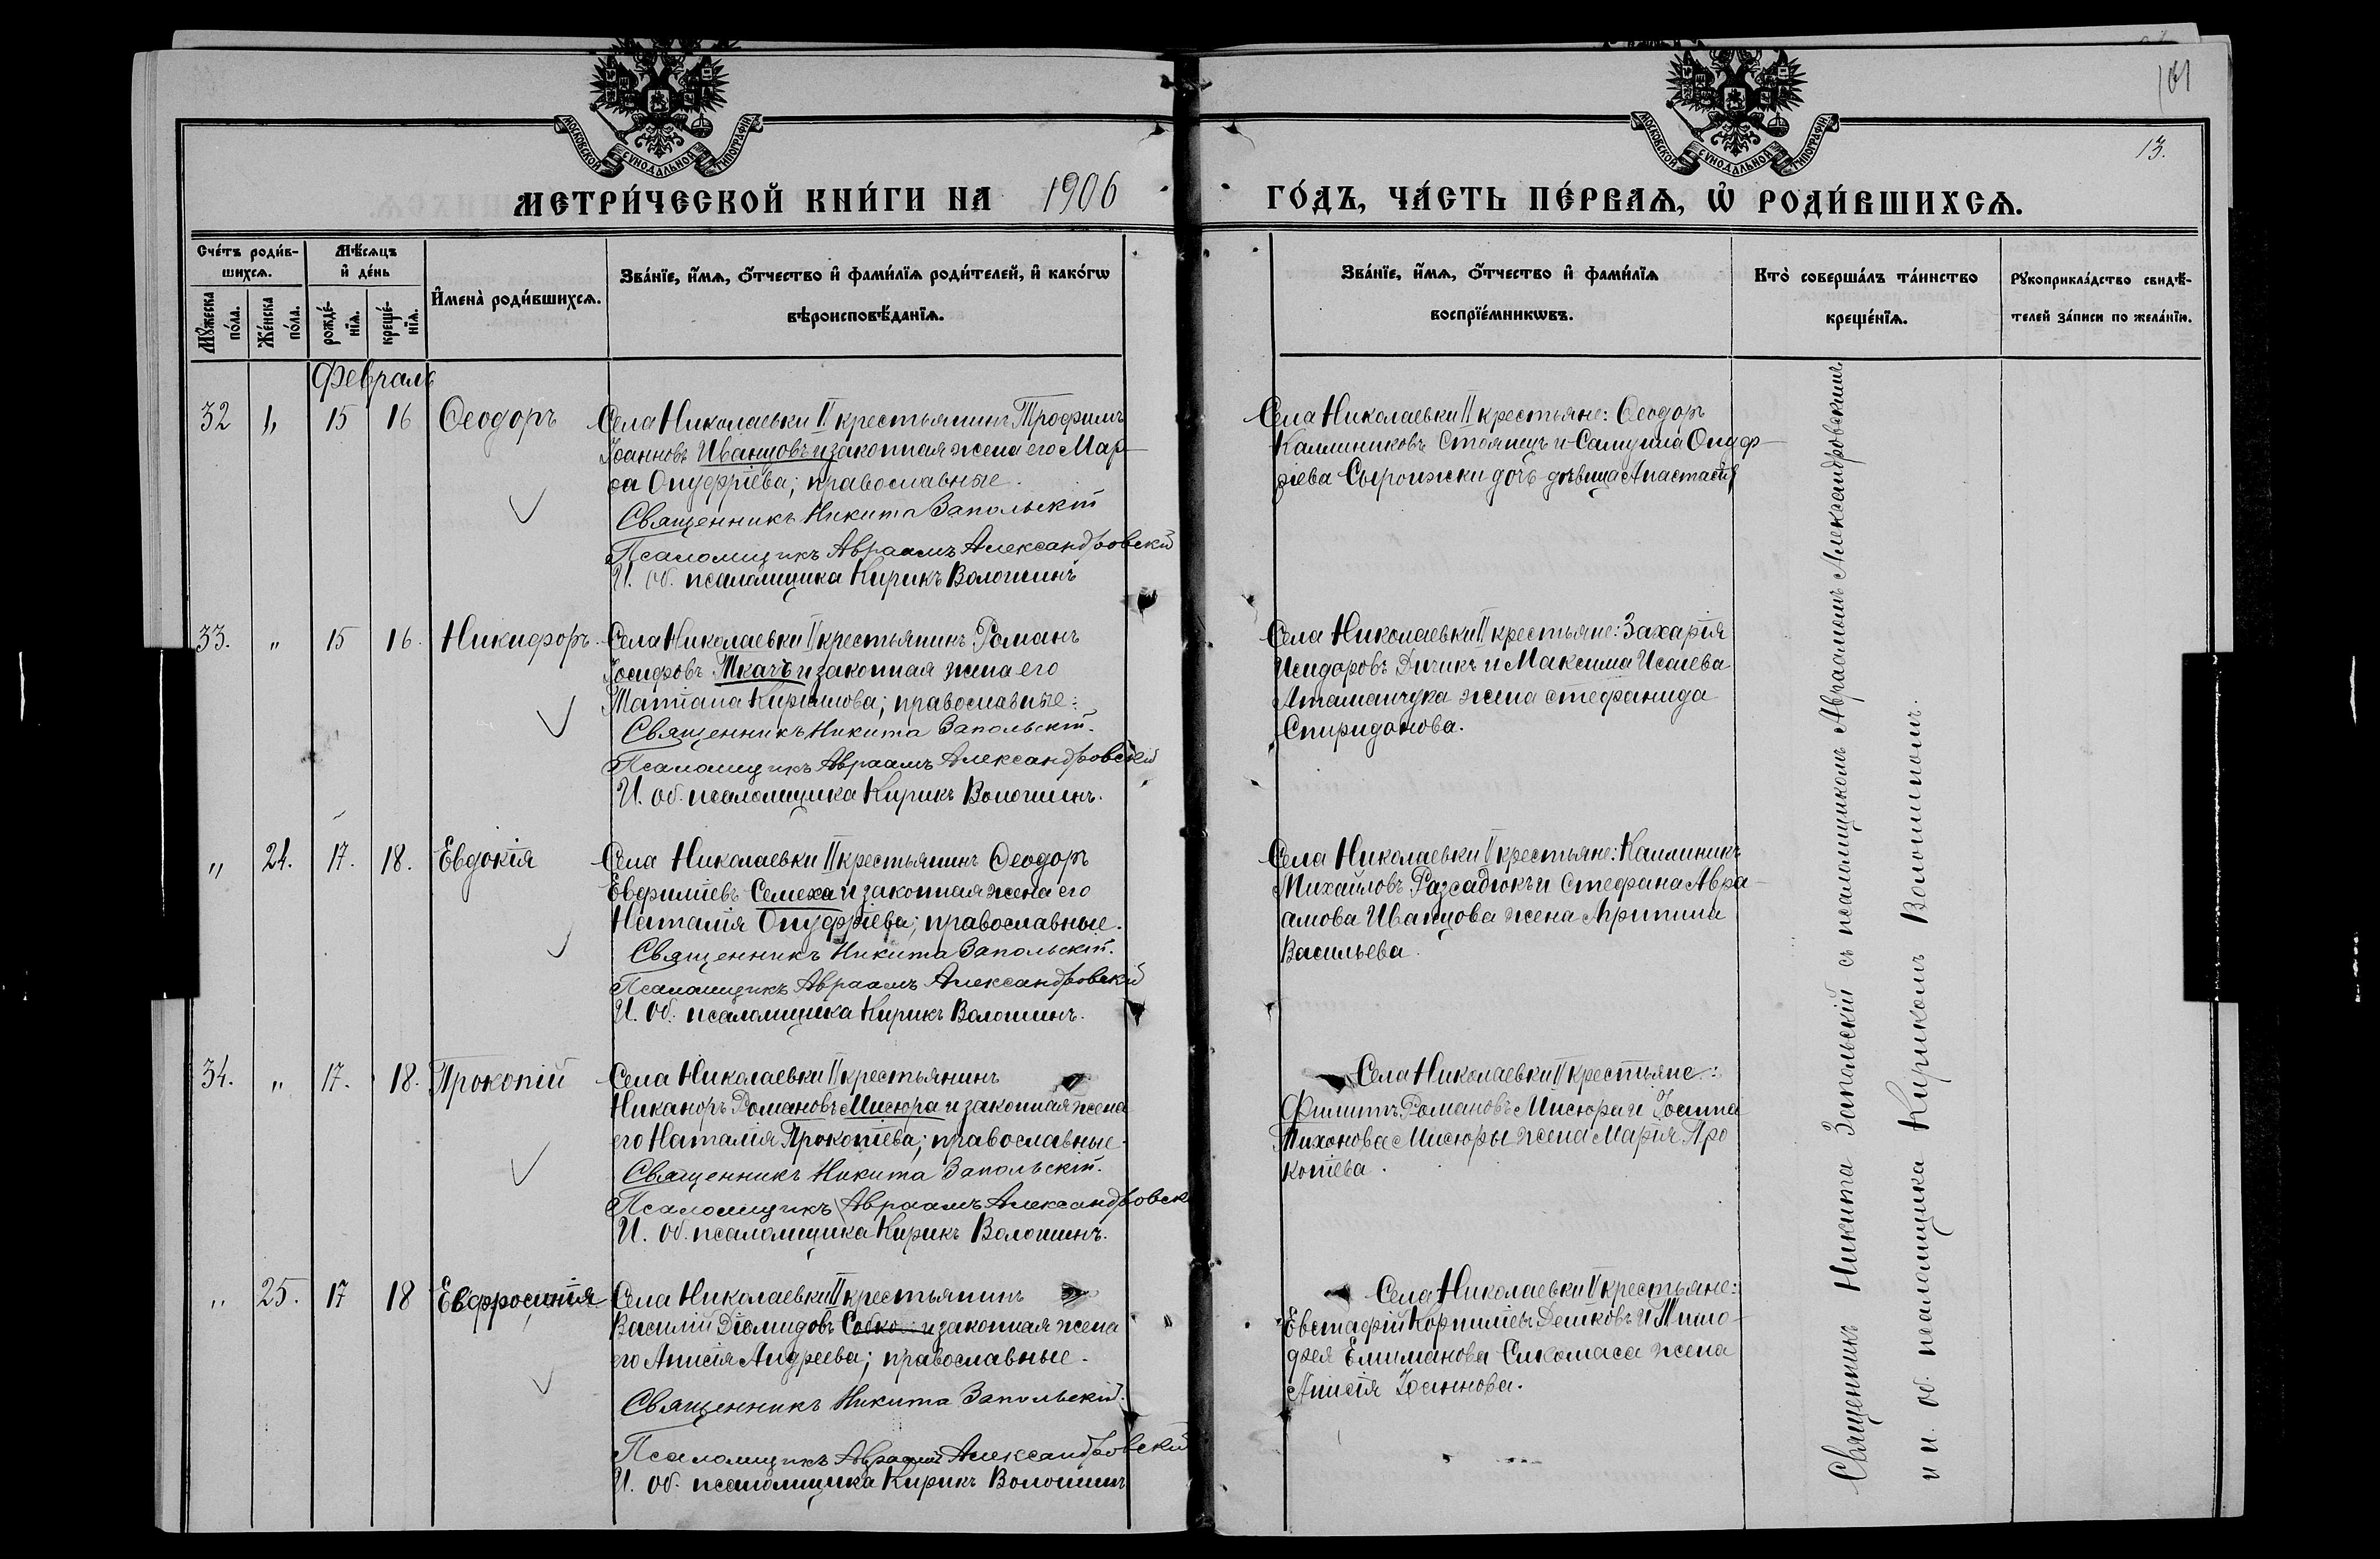 101
13.
МОСКОВСКОЙ СѴНОДАЛЬНОЙ ТИПОГРАФІИ
МОСКОВСКОЙ СѴНОДАЛЬНОЙ ТИПОГРАФІИ
МЕТРИ́ЧЕСКОЙ КНИ́ГИ НА 1906
ГО́ДЪ, ЧА́СТЬ ПЕ́РВАѦ, Ѡ҆ РОДИ́ВШИХСѦ.
Сче́тъ роди́в-
шихсѧ.
Мꙋ́жеска по́ла.
Же́нска по́ла.
Мѣ́сѧцъ
и҆ де́нь
рожде́-
нїѧ.
креще́-
нїѧ.
И҆мена̀ роди́вшихсѧ.
Зва́нїе, и҆́мѧ, ѻ҆́тчество и҆ фами́лїѧ роди́телей, и҆ како́гѡ
вѣроисповѣ́данїѧ.
Зва́нїе, и҆́мѧ, ѻ҆́тчество и҆ фами́лїѧ
воспрїе́мникѡвъ.
Кто̀ соверша́лъ та́инство
креще́нїѧ.
Рꙋкоприкла́дство свидѣ́-
телей за́писи по жела́нїю.
Февраль
32 „ 15 16 Ѳеодоръ
Села Николаевки II крестьянинъ Трофимъ
Іоанновъ Иванцовъ и законная жена его Мар-
ѳа Онуфріева; православные.
Священникъ Никита Запольскій
Псаломщикъ Авраамъ Александровскій
И. об. псаломщика Кирикъ Волошинъ
Села Николаевки II крестьяне: Ѳеодоръ
Каллиниковъ Стоянцъ и Самуила Онуф-
ріева Сыроижки дочь дѣвица Анастасія
33. „ 15 16. Никифоръ.
Села Николаевки II крестьянинъ Романъ
Іосифовъ Ткачъ и законная жена его
Татіана Кириллова; православные:
Священникъ Никита Запольскій.
Псаломщикъ Авраамъ Александровскій
И. об. псаломщика Кирикъ Волошинъ.
Села Николаевки II крестьяне: Захарія
Исидоровъ Дичикъ и Максима Исаіева
Атаманчука жена Стефанида
Спиридонова.
„ 24. 17. 18. Евдокія
Села Николаевки II крестьянинъ Ѳеодоръ
Евфиміевъ Семеха и законная жена его
Наталія Онуфріева; православные.
Священникъ Никита Запольскій.
Псаломщикъ Авраамъ Александровскій
И. об. псаломщика Кирикъ Волошинъ.
Села Николаевки II крестьяне: Каллиникъ
Михайловъ Разсадюкъ и Стефана Авра-
амова Иванцова жена Агрипина
Васильева.
34. „ 17. 18. Прокопій
Села Николаевки II крестьянинъ
Никаноръ Романовъ Мисюра и законная жена
его Наталія Прокопіева; православные.
Священникъ Никита Запольскій.
Псаломщикъ Авраамъ Александровск
И. об. псаломщика Кирикъ Волошинъ.
Села Николаевки II крестьяне:
Филиппъ Романовъ Мисюра и Іоанна
Тихонова Мисюры жена Марія Про
копіева.
„ 25. 17 18 Евфросинія
Села Николаевки II крестьянинъ
Василій Діомидовъ Собко и законная жена
его Анисія Андреева; православные.
Священникъ Никита Запольскій.
Псаломщикъ Авраамъ Александровскій
И. об. псаломщика Кирикъ Волошинъ
Села Николаевки II крестьяне:
Евстафій Корниліевъ Дешковъ и Тимо-
фея Елиманова Сикомаса жена
Анисія Іоаннова.
Священникъ Никита Запольскій съ псаломщикомъ Авраамомъ Александровскимъ
и и. об. псаломщика Кирикомъ Волошиномъ.